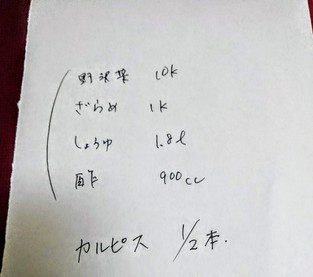 野沢菜 10K
ざらめ 1K
しょうゆ 1.8ℓ
酢 900cc
カルピス 1/2本.